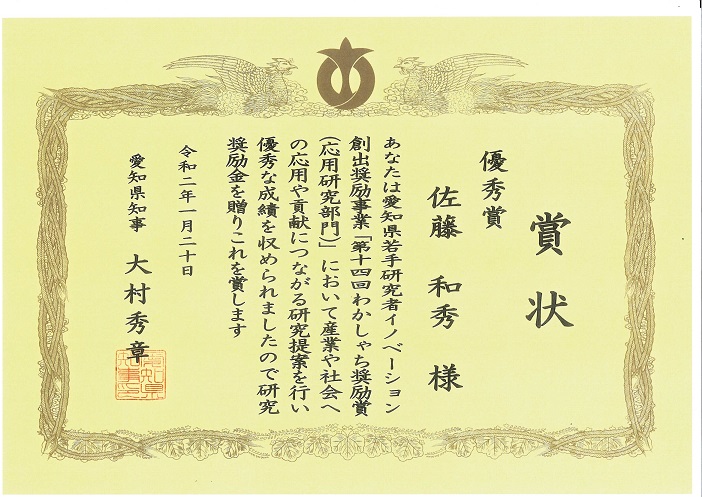 賞状
優秀賞
佐藤 和秀 様
あなたは愛知県若手研究者イノベーション
創出奨励事業「第十四回わかしゃち奨励賞
(応用研究部門)」において産業や社会へ
の応用や貢献につながる研究提案を行い
優秀な成績を収められましたので研究
奨励金を贈りこれを賞します
令和二年一月二十日
愛知県知事 大村秀章
愛知県
知事印